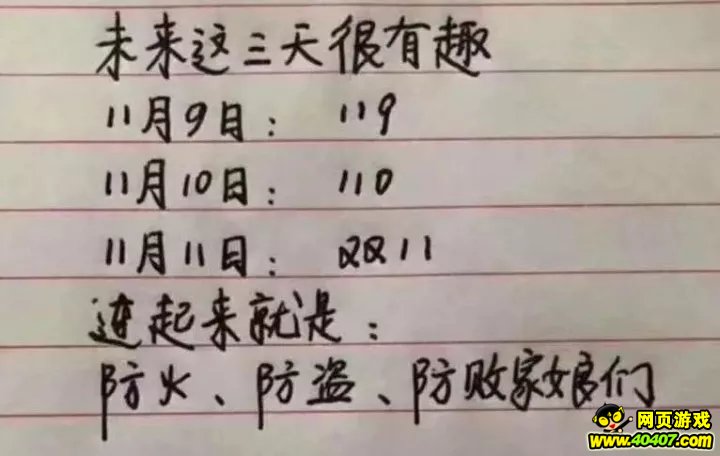 未来这三天很有趣
11月9日: 119
11月10日: 110
11月11日: 双双11
连起来就是:
防火、防盗、防败家娘们
网页游戏
www.40407.com